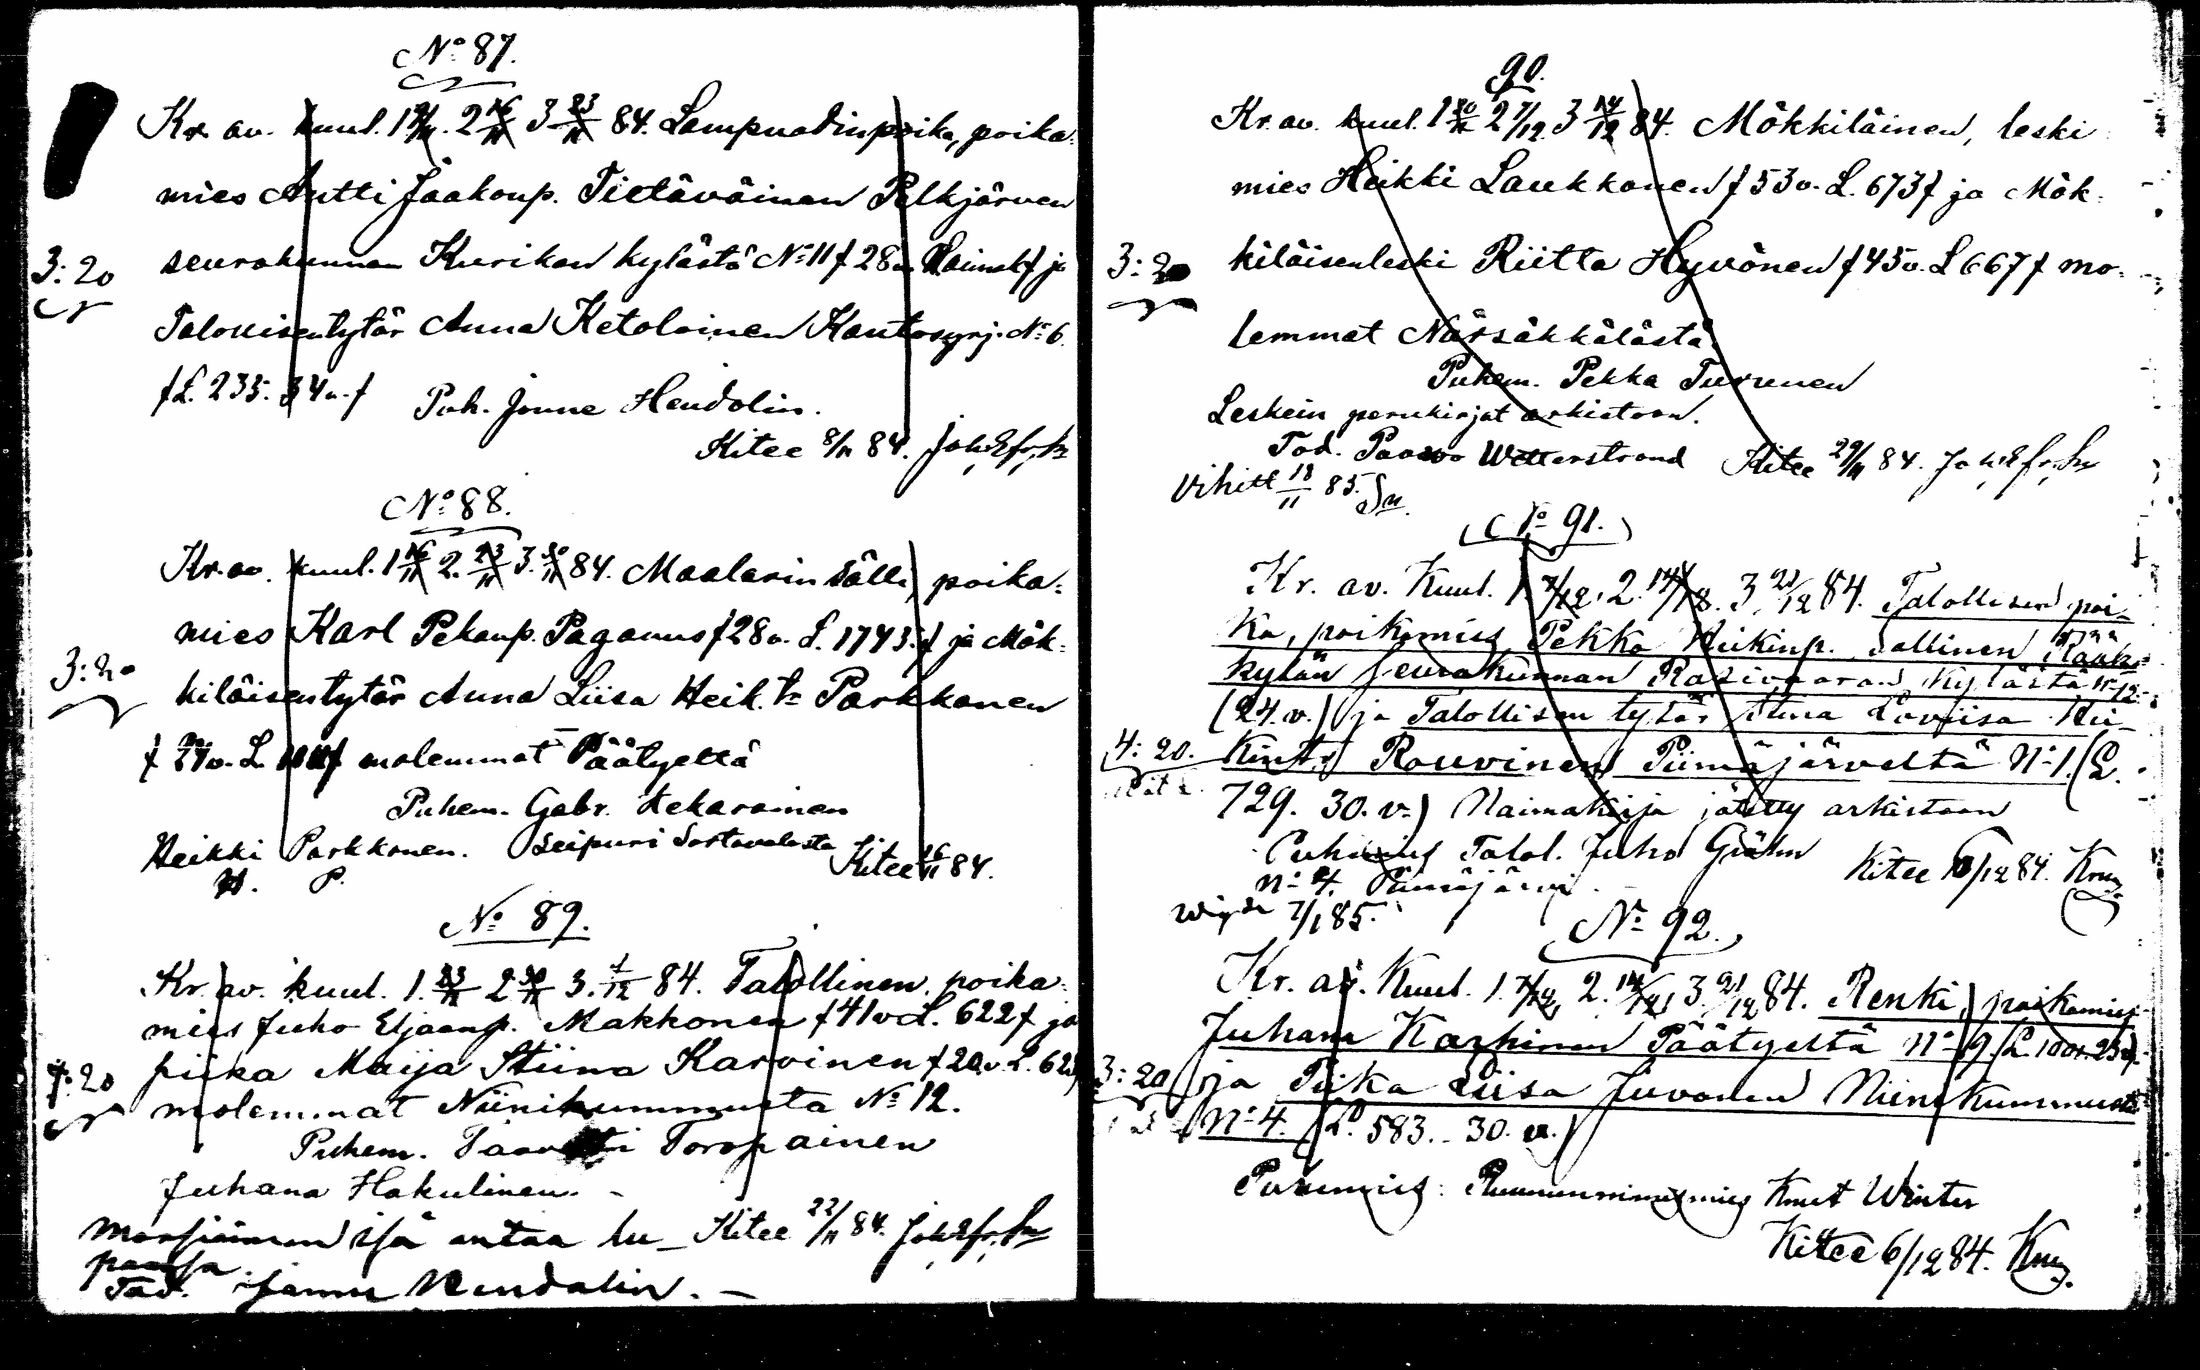 No 87.
Kr. av. kuul. 1 9/11. 2 16/11 3 23/11 84. Lampuodinpoika, poika-
mies Antti Jaakonp. Tietäväinen Pelkjärven
3:20 seurakunnan Kurikan kylästä No 11 f 28 v. f ja
Talollisentytär Anna Ketolainen Kantosyrj. No 6.
f L. 235. 34 v. f Puh. Jonne Hendolin.
Kitee 8/11 84.
No 88.
Kr. av. kuul. 1 16/11 2. 23/11 3. 30/11 84. Maalarin sälli, poika-
mies Karl Pekanp. Paganus f 28 v. L. 1743. f ja Mök-
3:20 kiläisentytär Anna Liisa Heik. tr Parkkonen
molemmat Päätyeltä
Puhem. Gabr. Kekarainen
Heikki Parkkonen. Seipuri Sortavalasta
H. P. Kitee 16/11 84.
No 89.
Kr. av. kuul. 1. 23/11 2 30/11 3. 84. Talollinen, poika-
mies Juho Eljaanp. Makkonen f 41 v L. 622 f ja
piika Maija Stiina Karvinen f 20 v. L.
:20 molemmat Niinikummusta No 12.
Puhem. Taavetti Toropainen
Juhana Hakulinen. -
Morsiamen isä antaa lu- Kitee 22/11 84.
paansa
Tod. Hendolin. -
90.
Kr. av. kuul. 1 30/11 2 7/12. 3 14/12 84. Mökkiläinen, leski
mies Heikki Laukkanen f 53 v. L. 673 f ja Mök-
3:20 kiläisenleski Riitta Hyvönen f 45 v. L 667 f mo-
lemmat Närsäkkälästä.
Puhem. Pekka Turunen
Leskein perukirjat arkistoon.
Tod. Paavo Wetterstrand Kitee 29/11 84.
Vihitt 18/11 85.
No 91.
Kr. av. Kuul. 1. 7/12. 2. 14/12. 3. 21/12 84. Talollisen poi-
ka, poikamies Pekka Heikinp. Sallinen Rääk-
kylän seurakunnan Rasivaaran kylästä No 12.
(24. v.) ja Talollisen tytär Loviisa Hei-
4:20. kintr Rouvinen Piimäjärveltä No 1. (L.
729. 30. v.) Naimakirja jätetty arkistoon
Puhemies Talol. Juho Gråhn
No 4. Piimäjärvi. Kitee 6/12 84.
7/1 85.
No 92.
Kr. av. Kuul. 1. 7/12, 2. 14/12, 3. 21/12 84. Renki, poikamies
Juhana Karhinen Päätyeltä No 9. (L.
3:20 ja Piika Liisa Juvonen Niinikummusta
No 4. (L. 583. - 30. v.)
Puhemies: Ruununnimismies Knut Winter
Kitee 6/12 84.